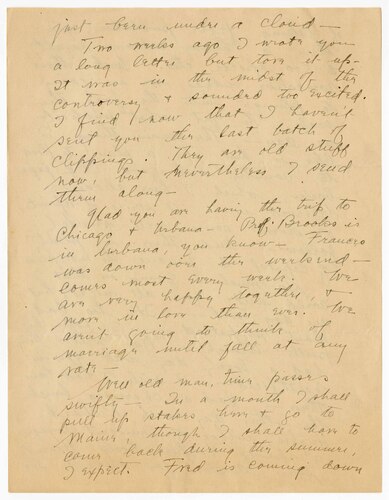 just been under a cloud —
Two weeks ago I wrote you
a long letter but tore it up –
It was in the midst of the
controversy & sounded too excited.
I find now that I haven't
sent you the last batch of
clippings. They are old stuff
now, but nevertheless I send
them along —
Glad you are having the trip to
Chicago & Urbana — Prof. Brooks is
in Urbana, you know — Frances
was down over the weekend —
comes most every week. We
are very happy together, &
more in love than ever. We
aren't going to think of
marriage until fall at any
rate —
Well old man, time passes
swiftly — In a month I shall
pull up stakes here & go to
Maine, though I shall have to
come back during the summer,
I expect. Fred is coming down